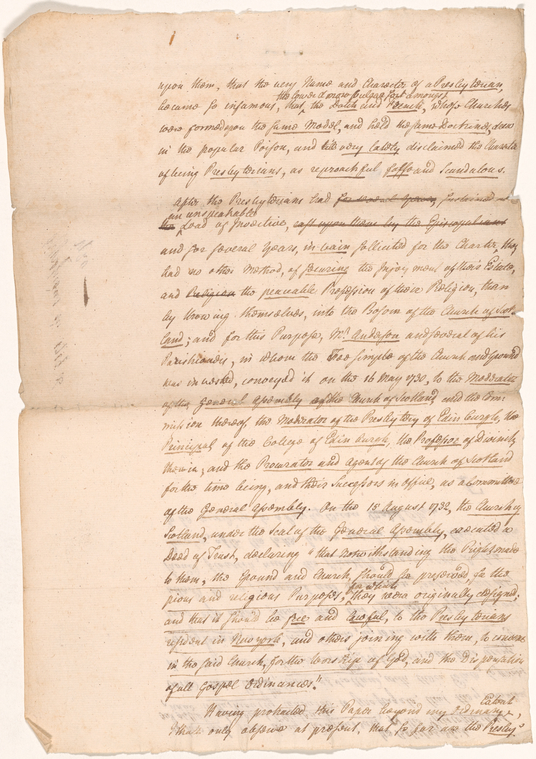 upon them, that the very Name and Character of a Presbyterian,
the lower & more vulgar sort amongst
became so infamous, that the Dutch and French, whose Churches
were formed upon the same Model, and held the same Doctrines, drew
in the popular Poison, and till very lately disclaimed the Character
of being Presbyterians, as reproachful false and Scandalous.
After the Presbyterians had for several Years, sustained
an unspeakable
Load of Invective, cast upon them by the Episcopalians
and for several Years, in vain sollicited for the Charter, they
had no other Method, of securing the Injoyment of their Estate,
and Religion the peaceable Profession of their Religion, than
by throwing themselves, into the Bosom of the Church of Scot
land; and for this Purpose, Mr. Anderson and several of his
Parishioners, in whom the Fee simple of the Church and Ground
was invested, conveyed it on the 16 May 1730, to the Moderator
of the General Assembly of the Church of Scotland and the Com
mission thereof, the Moderator of the Presbytery of Edinburgh, the
Principal of the College of Edinburgh, the Professor of Divinity
therein, and the Procurator and Agent of the Church of Scotland
for the time being, and their Successors in office, as a Committee
of the General Assembly. On the 15 August 1732, the Church of
Scotland, under the Seal of the General Assembly, executed a
Deed of Trust, declaring "that notwithstanding the Right made
to them, the Ground and Church, should be preserved, for the
for which
pious and religious Purposes, they were originally designed,
and that it should be free and lawful, to the Presbyterians
resident in New York, and others joining with them, to convene
in the said Church, for the worship of God, and the Dispensation
of all Gospel Ordinances."
Having protracted this Paper beyond my Ordinary
Extent
I shall only observe at present, that so far are the Presby